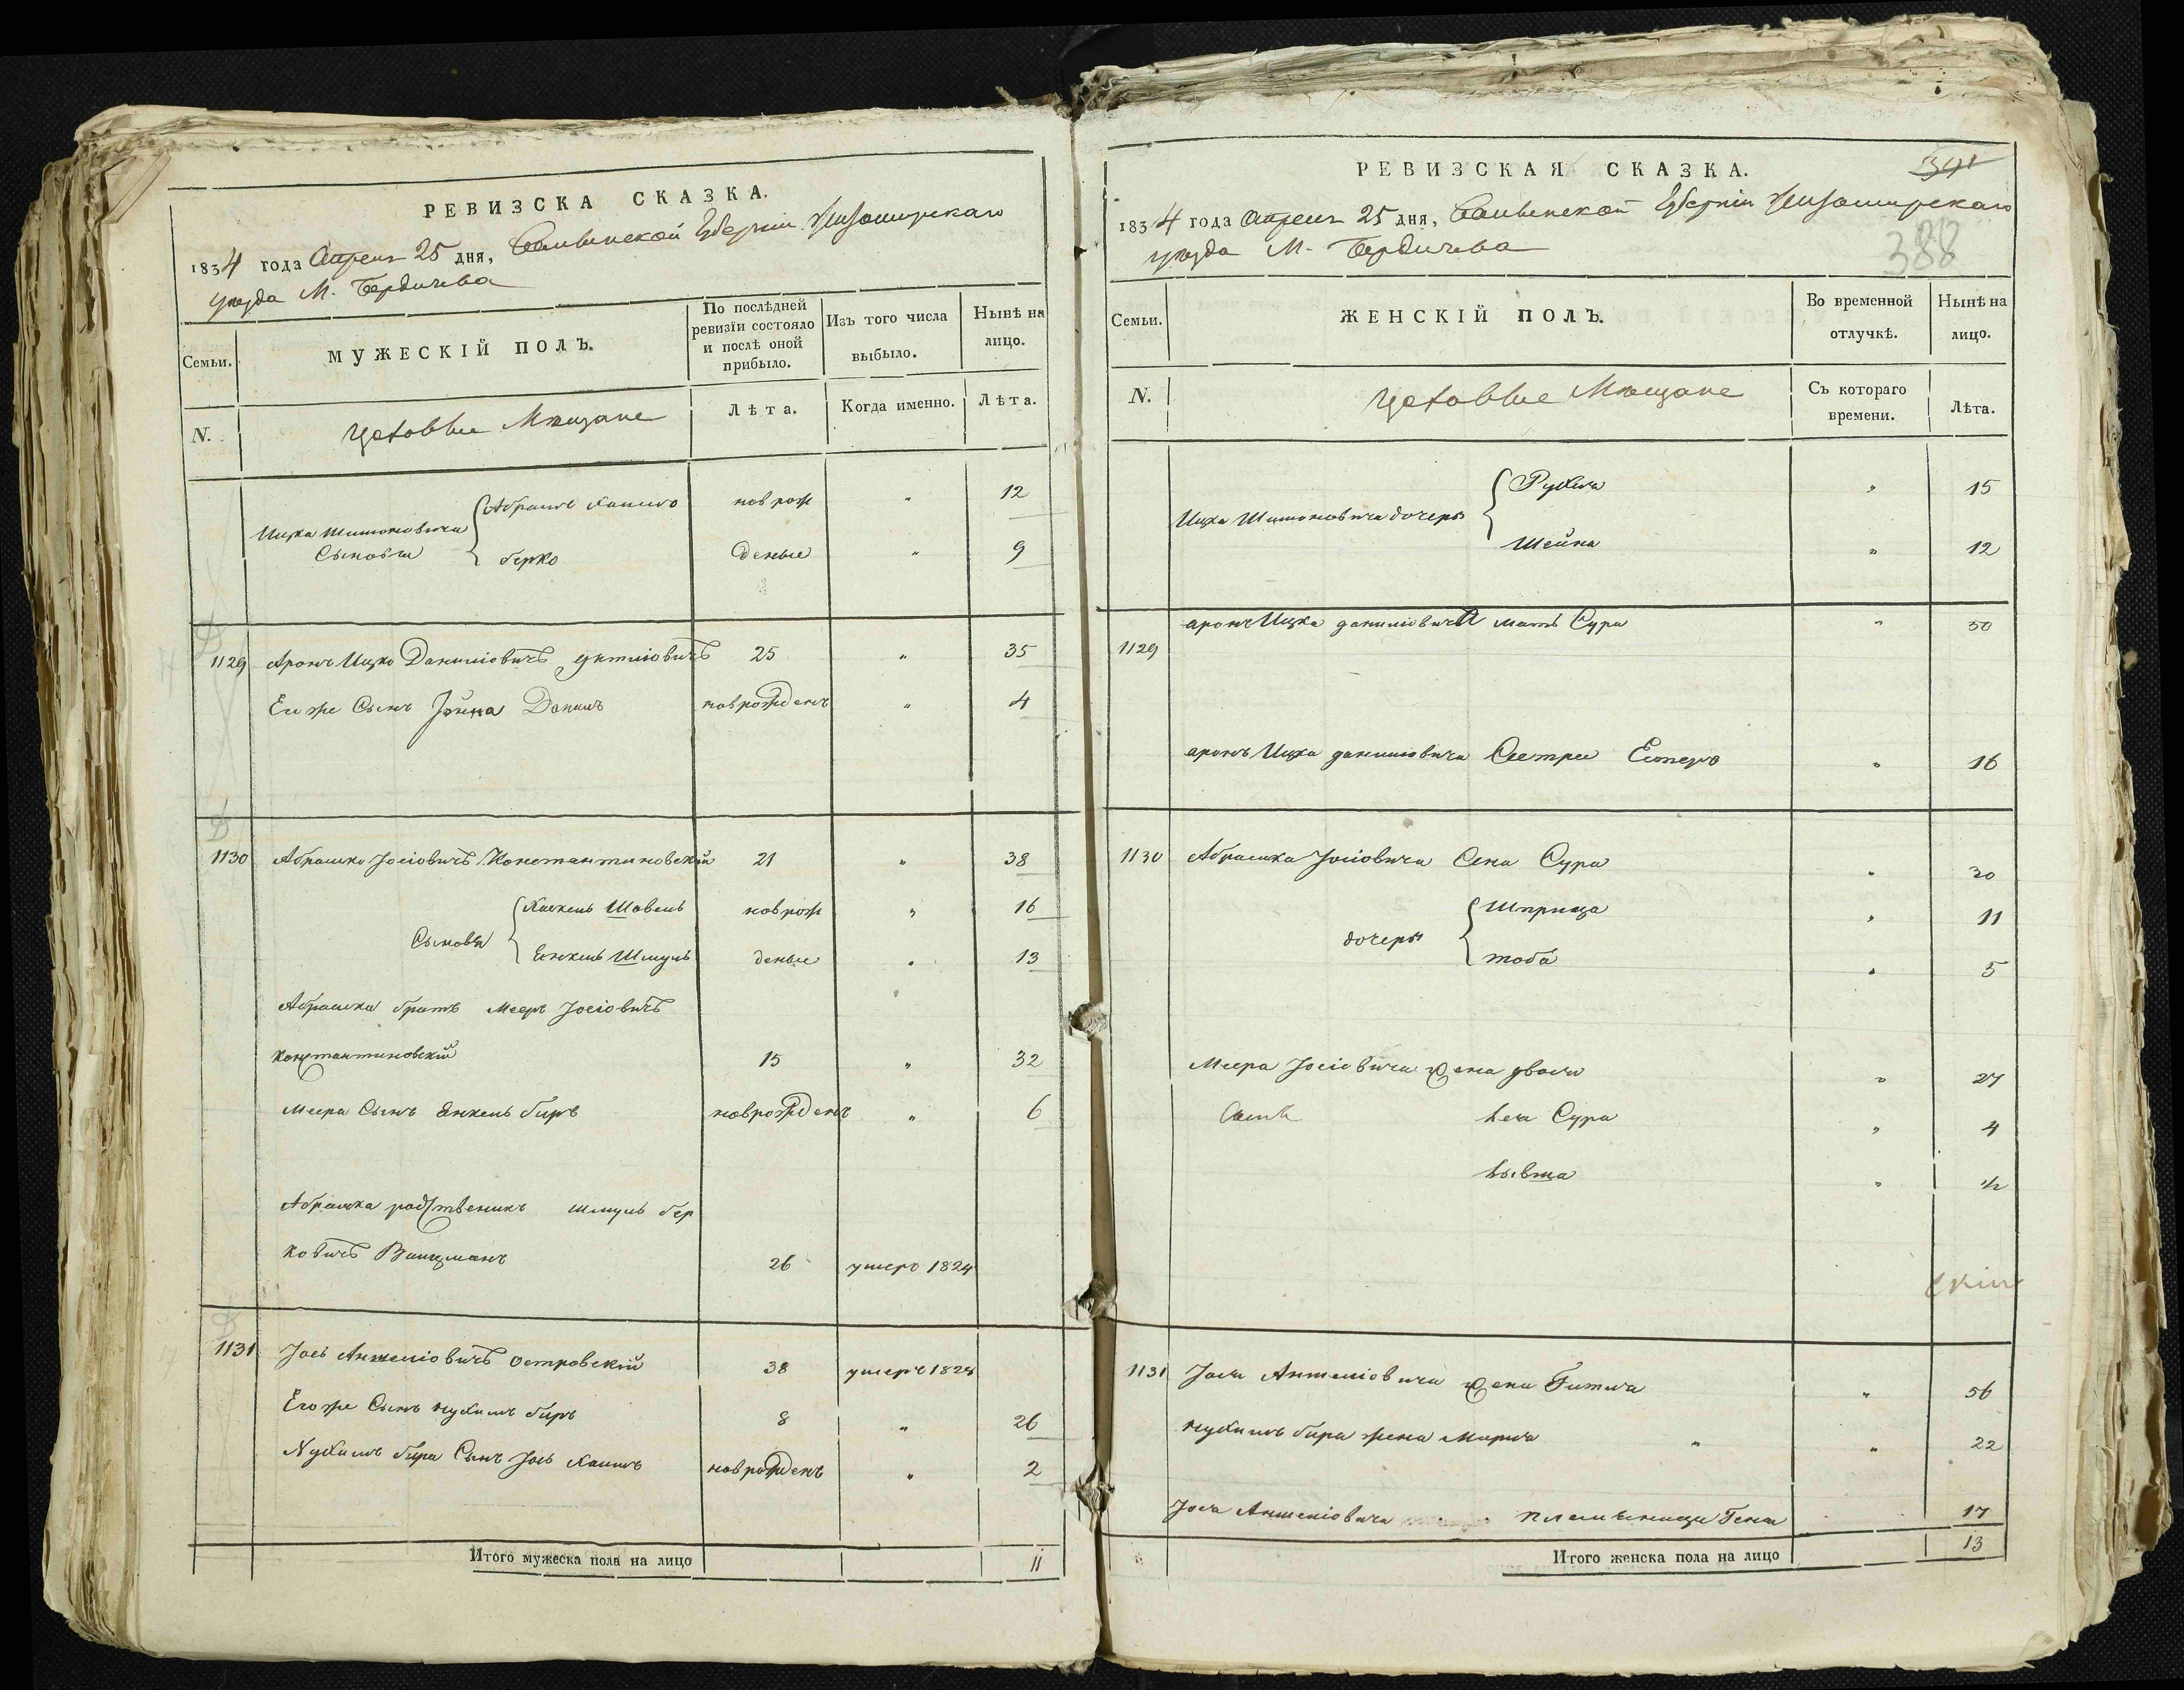 РЕВИЗСКА СКАЗКА.
1834 года Апреля 25 дня, Волынской Губернiи Житомирскаго
уезда М. Бердичева
Семьи.
МУЖЕСКIЙ ПОЛЪ.
По послѣдней ревизiи состояло и послѣ оной прибыло.
Изъ того числа выбыло.
Нынѣ на лицо.
N.
Цеховые Мѣщане
Лѣта.
Когда именно.
Лѣта.
Ицка Шимоновича Сыновья
Абрамъ Хаимъ новрож " 12
Берко деные " 9
1129 Аронъ Ицко Данилiовичъ 25 " 35
Его же Сынъ Данилъ новрожденъ " 4
1130 Абрашко Iосiовичъ Константиновскiй 21 " 38
Сыновья
Хаскель Шовель новрож " 16
Енкель Шмуль деные " 13
Абрашка братъ Мееръ Iосiовичъ
Константиновскiй 15 " 32
Меера Сынъ Енкель Беръ новрожденъ " 6
Абрашка родственикъ Шмуль Бер
ковичъ 26 умеръ 1824
1131 Iось Аншелiовичъ Островскiй 38 умеръ 1828
Его же Сынъ Нухимъ Беръ 8 " 26
Нухимъ Бера Сынъ Iось Хаимъ новрожденъ " 2
Итого мужеска пола на лицо 11
РЕВИЗСКАЯ СКАЗКА.
388
1834 года Апреля 25 дня, Волынской Губернiи Житомирскаго
уезда М. Бердичева
Семьи.
ЖЕНСКIЙ ПОЛЪ.
Во временной отлучкѣ.
Нынѣ на лицо.
N.
Цеховые Мѣщане
Съ котораго времени.
Лѣта.
Ицка Шимоновича дочеры
Рухля " 15
Шейна " 12
1129 Аронъ Ицка Данилiовича мать Сура " 50
Аронъ Ицка Данилiовича Сестра Естеръ " 16
1130 Абрашка Iосiовича Жена Сура " 30
дочеры
Шпринца " 11
Тоба " 5
Меера Iосiовича жена Двося " 27
Сура " 4
" 1/2
1131 Iося Аншелiовича жена Гитля " 56
Нухимъ Бера жена Мирля " 22
Iося Аншелiовича племеница Геня 17
Итого женска пола на лицо 13